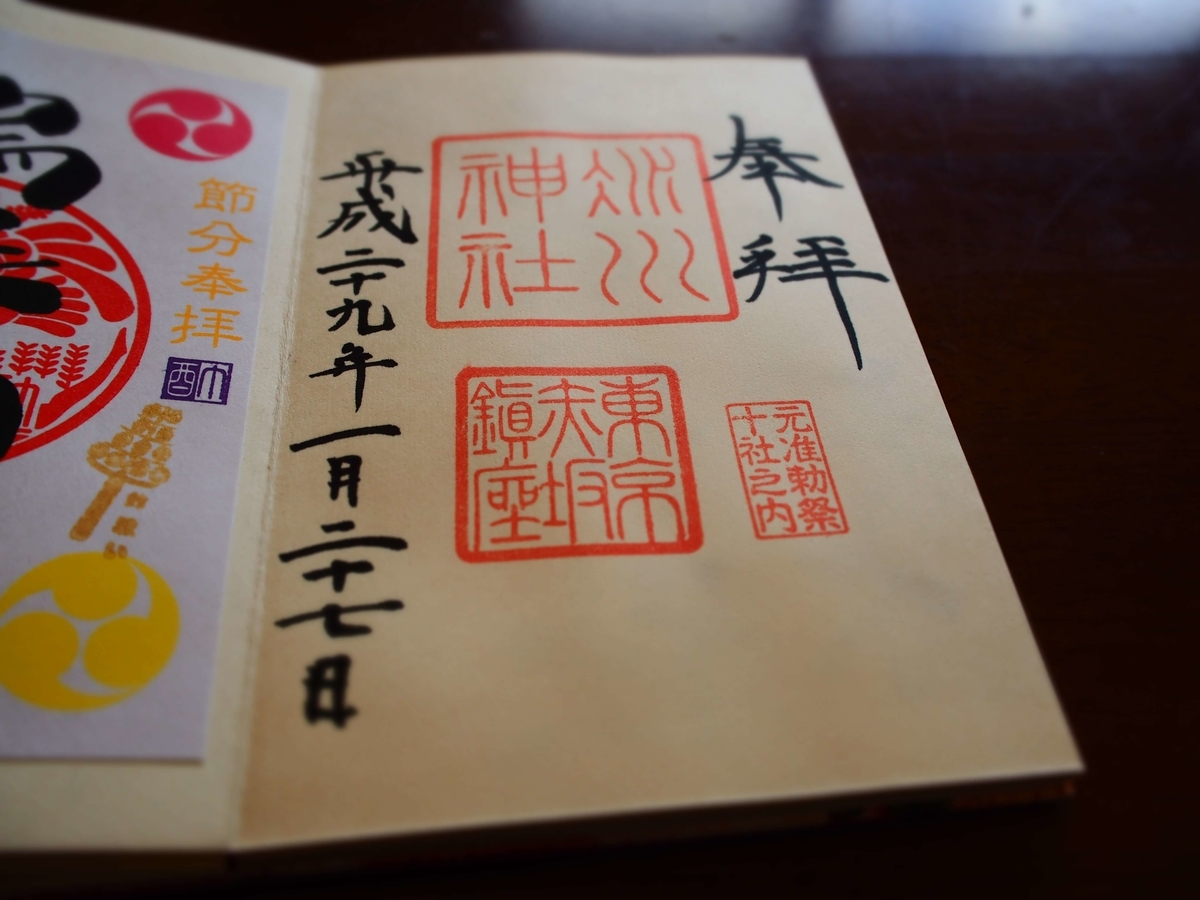 奉拝
氷川
神社
東京
赤坂
鎮座
元准勅祭
十社之内
平成二十九年一月二十七日
節分奉拝